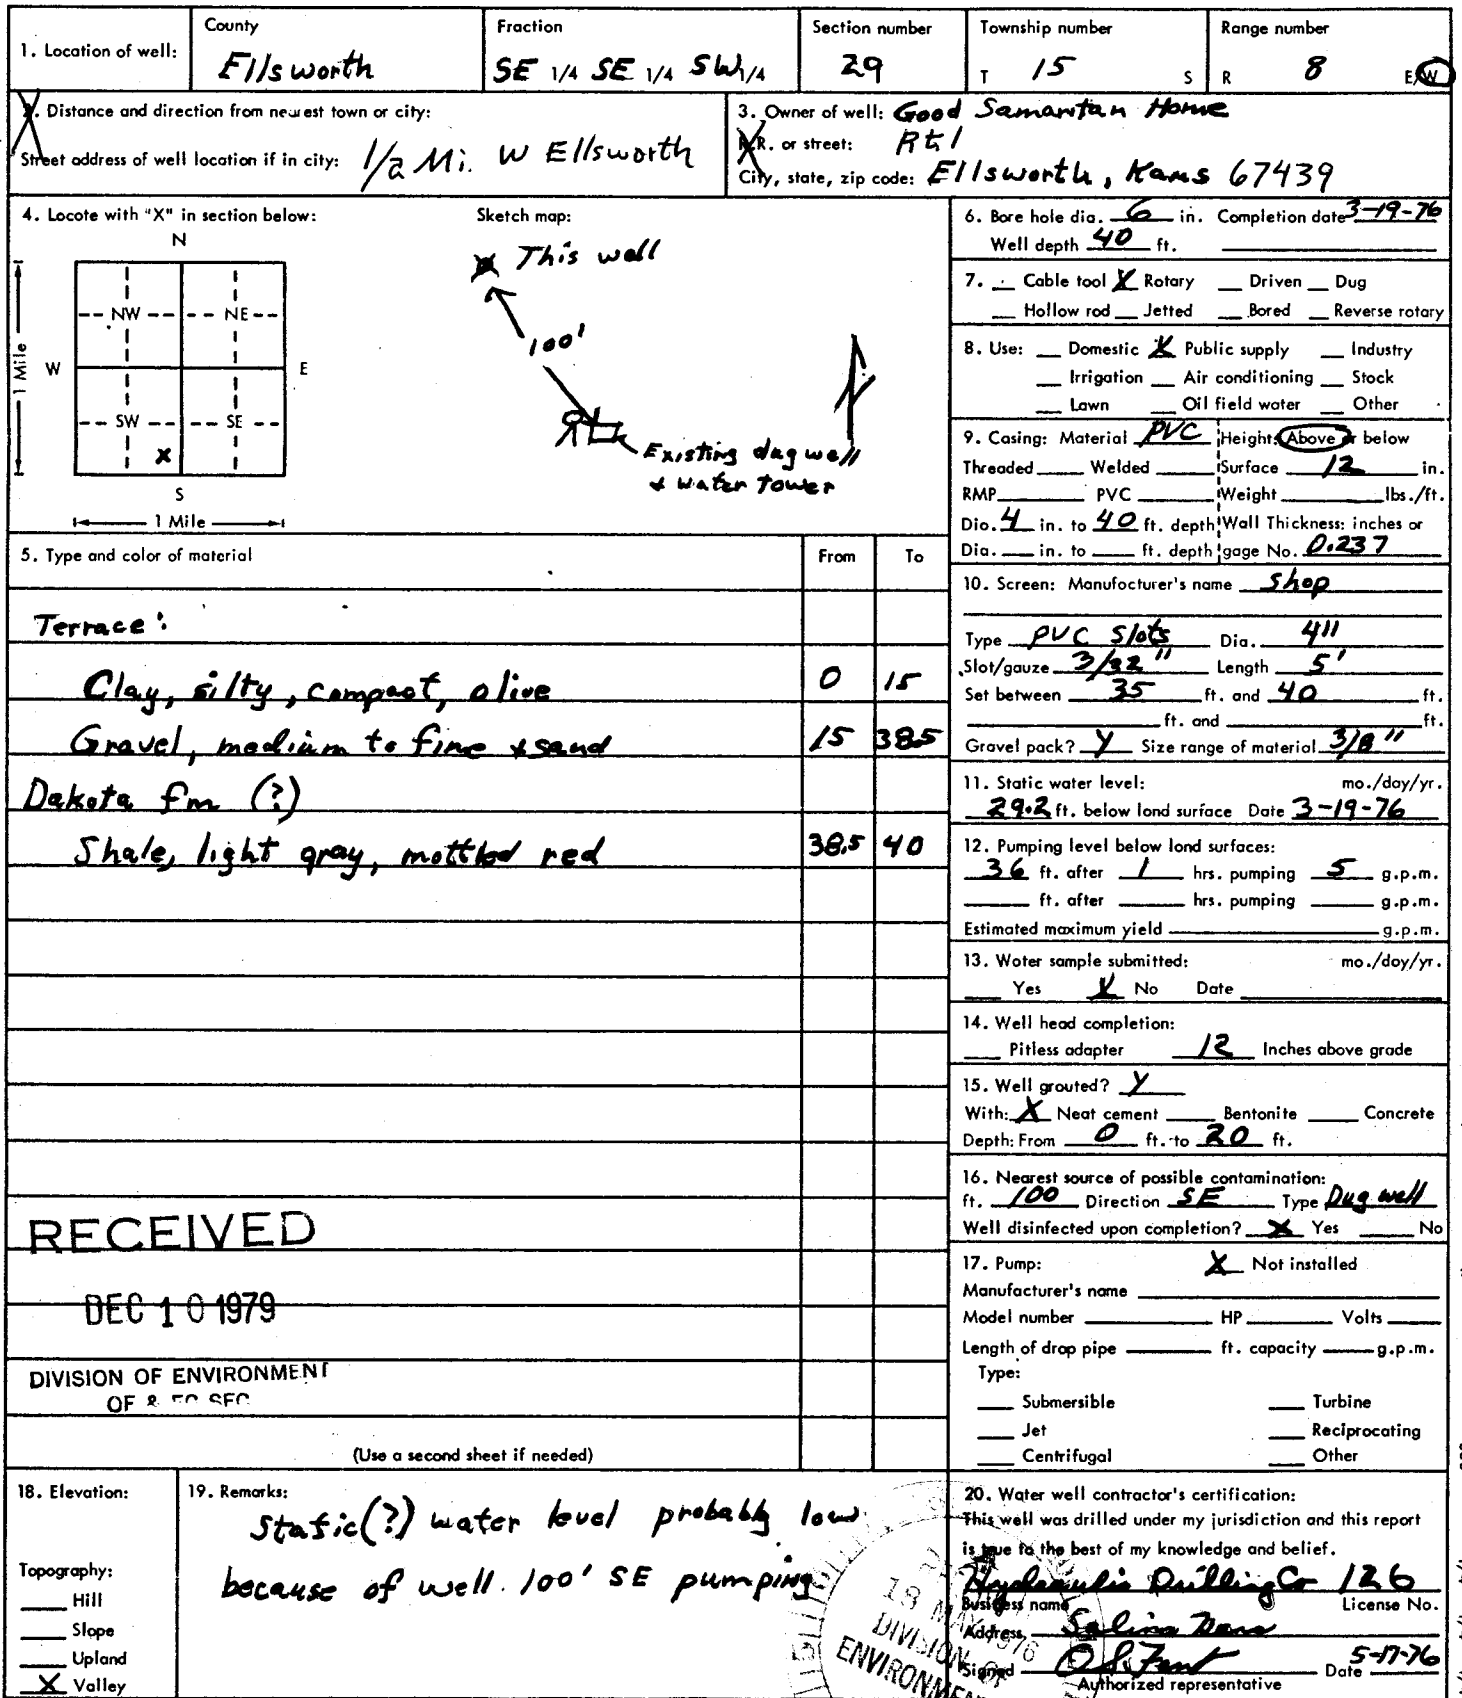 County Fraction Section number Township number Range number
1. Location of well: Ellsworth SE 1/4 SE 1/4 SW 1/4 29 T 15 S R 8 E/W
2. Distance and direction from nearest town or city:
Street address of well location if in city: 1/2 Mi. W Ellsworth
3. Owner of well: Good Samaritan Home
R.R. or street: Rt 1
City, state, zip code: Ellsworth, Kans 67439
4. Locote with "X" in section below: Sketch map:
N
NW NE
W E
SW SE
X
S
1 Mile
1 Mile
This well
100'
Existing dug well
& water tower
5. Type and color of material From To
Terrace:
Clay, silty, compact, olive 0 15
Gravel, medium to fine & sand 15 38.5
Dakota fm (?)
Shale, light gray, mottled red 38.5 40
RECEIVED
DEC 10 1979
DIVISION OF ENVIRONMENT
(Use a second sheet if needed)
6. Bore hole dia. 6 in. Completion date 3-19-76
Well depth 40 ft.
7. Cable tool X Rotary Driven Dug
Hollow rod Jetted Bored Reverse rotary
8. Use: Domestic X Public supply Industry
Irrigation Air conditioning Stock
Lawn Oil field water Other
9. Casing: Material PVC Height: Above or below
Threaded Welded Surface 12 in.
RMP PVC Weight lbs./ft.
Dia. 4 in. to 40 ft. depth Wall Thickness: inches or
Dia. in. to ft. depth gage No. 0.237
10. Screen: Manufacturer's name Shop
Type PVC Slots Dia. 4"
Slot/gauze 3/32" Length 5'
Set between 35 ft. and 40 ft.
ft. and ft.
Gravel pack? Y Size range of material 3/8"
11. Static water level: mo./day/yr.
29.2 ft. below lond surface Date 3-19-76
12. Pumping level below lond surfaces:
36 ft. after 1 hrs. pumping 5 g.p.m.
ft. after hrs. pumping g.p.m.
Estimated maximum yield g.p.m.
13. Woter sample submitted: mo./day/yr.
Yes X No Date
14. Well head completion:
Pitless adapter 12 Inches above grade
15. Well grouted? Y
With: X Neat cement Bentonite Concrete
Depth: From 0 ft. to 20 ft.
16. Nearest source of possible contamination:
ft. 100 Direction SE Type Dug well
Well disinfected upon completion? X Yes No
17. Pump: X Not installed
Manufacturer's name
Model number HP Volts
Length of drop pipe ft. capacity g.p.m.
Type:
Submersible Turbine
Jet Reciprocating
Centrifugal Other
18. Elevation:
Topography:
Hill
Slope
Upland
X Valley
19. Remarks:
Static(?) water level probably low
because of well 100' SE pumping
18 MAY 1976
DIVISION OF
20. Water well contractor's certification:
This well was drilled under my jurisdiction and this report
is true to the best of my knowledge and belief.
Hydraulic Drilling Co 126
Business name License No.
Address Salina Kans
Signed Date 5-17-76
Authorized representative